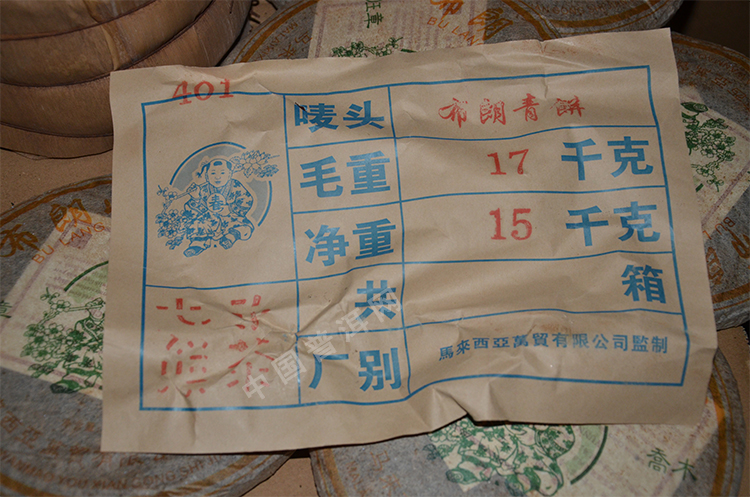 401
唛头 布朗青餅
毛重 17 千克
净重 15 千克
共 箱
厂别 馬來西亞萬貿有限公司監制
中国普洱
BU LANG
喬木